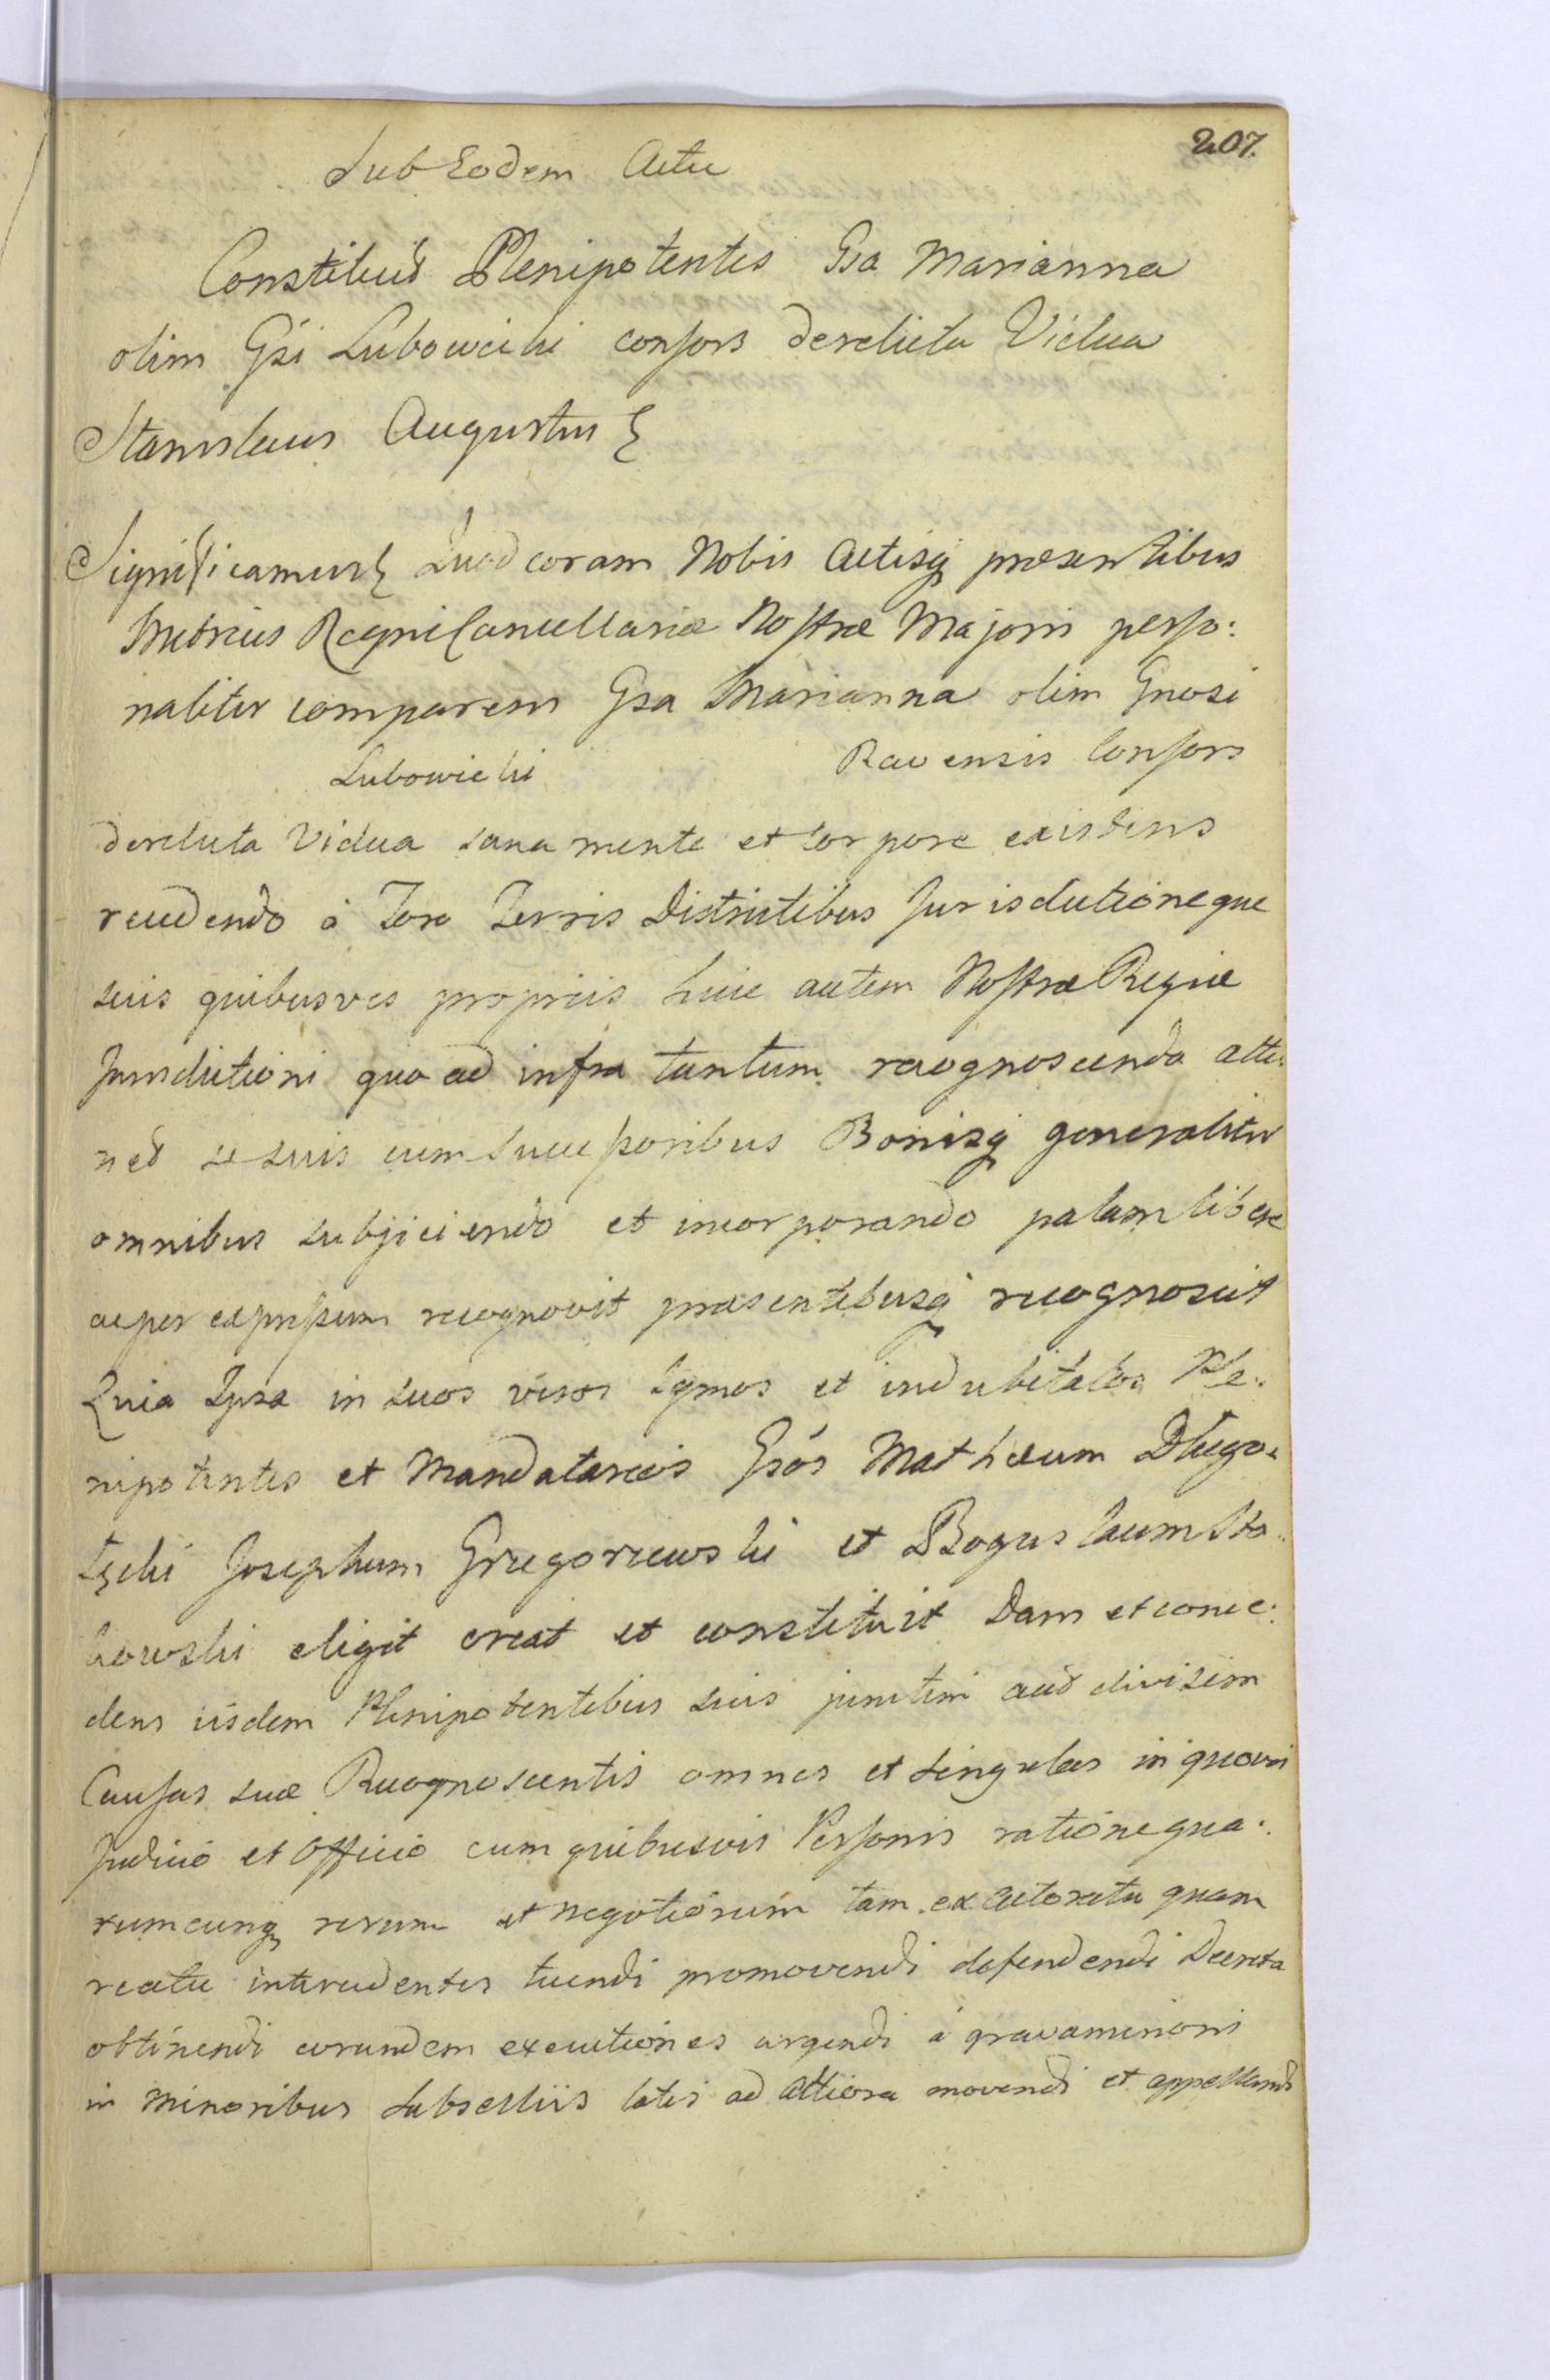 207.
Sub Eodem Actu
Constituit Plenipotentes Gsa Marianna
olim Gsi Lubowicki consors derelicta Vidua
Stanislaus Augustus
Significamus Quod coram Nobis Actisq presentibus
Metrices Regni Cancellariæ Nostræ Majoris perso:
naliter comparens Gsa Marianna olim Gnosi
Lubowicki Ravensis Consors
derelicta Vidua sana mente et corpore existens
recedendo à Foro Terris Districtibus Jurisdictioneque
suis quibusvis propriis huic autem Nostræ Regiæ
Jurisdictioni quo ad infra tantum recognoscenda atti:
net se suis cum Successoribus Bonisq generaliter
omnibus subjiciendo et incorporando palam libere
ac per expressum recognovit præsentibusq recognoscit
Quia Ipsa in suos veros Lgmos et indubitatos Ple:
nipotentes et Mandatarios Gsos Mathæum Dlugo:
lęcki Josephum Grzegorzewski et Boguslaum Sta
kowski eligit creat et constituit Dans et conce:
dens iisdem Plenipotentibus suis junctim aut divisim
Causas suæ Recognoscentis omnes et singulas in quovis
Judicio et Officio cum quibusvis Personis rationequa:
rumcunq rerum et negotiorum tam ex actoratu quam
reatu intercedentes tuendi promovendi defendendi Decreta
obtinendi eorundem executiones urgendi à gravaminoris
in minoribus Subselliis latis ad altiora movendi et appellandi